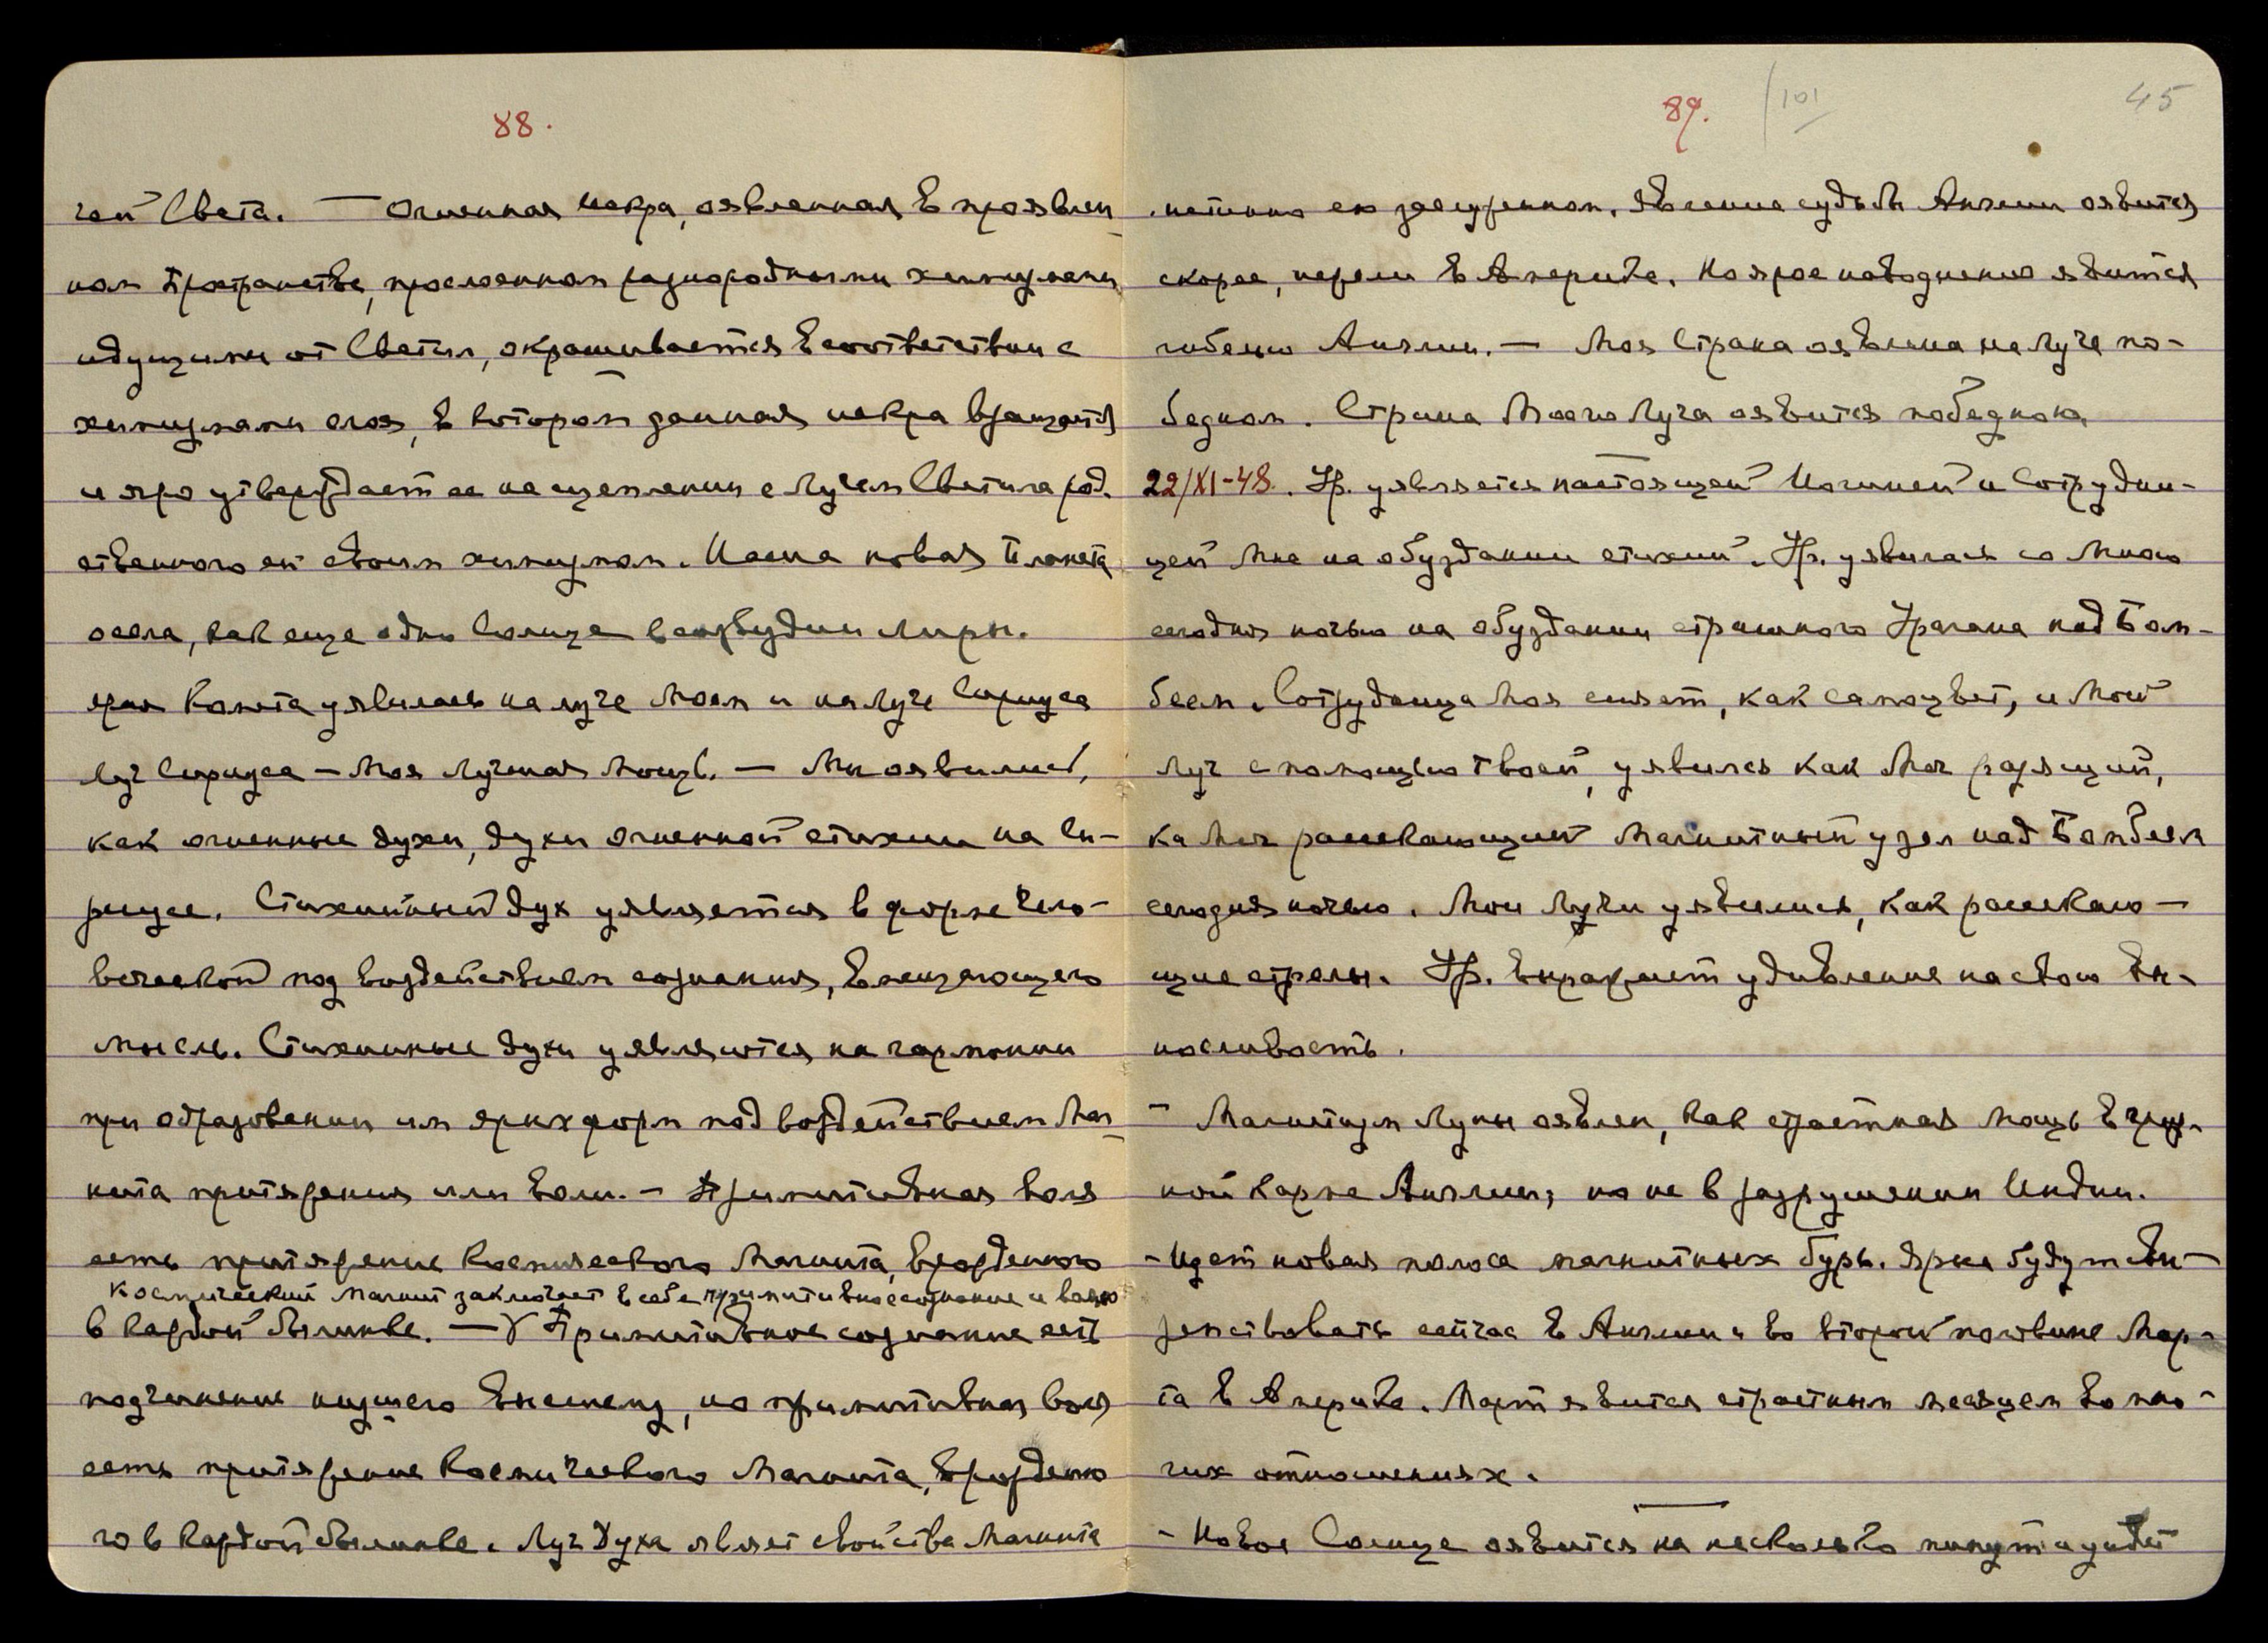 88.
чей Света. — Огненная искра, оявленная в проявлен-
ном Пространстве, прослоенном разнородными химизмами
идущими от Светил, окрашивается в соответствии с
химизмами слоя, в котором данная искра вращается
и яро утверждает ее на сцеплении с Лучем Светила род-
ственного ей своим химизмом. Наша новая Планета
ярая Комета уявилась на луче Моем и на Луче Сириуса
Луч Сириуса — Моя Лучшая Мощь. — Мы оявились,
как огненные духи, духи огненной стихии на Си-
риусе. Стихийный дух уявляется в форме чело-
веческой под воздействием сознания, вмещающего
мысль. Стихийные духи уявляются на гармонии
при образовании им ярких форм под воздействием Маг-
нита притяжения или воли. — Примитивная воля
есть притяжение Космического Магнита, врожденного
Космический Магнит заключает в себе примитивное сознание и волю
в каждой былинке. — V Примитивное сознание есть
подчинение низшего Высшему, но примитивная воля
есть притяжение Космического Магнита, врожденно
го в каждой былинке. Луч Духа являет свойства Магнита
89.
101
45
скорее, нежели в Америке. Но ярое наводнение явится
гибелью Англии. — Моя Страна оявлена на Луче по-
бедном. Страна Моего Луча оявится победной
22/XI-48. Ур. уявляется настоящей Йогиней и Сотрудни-
цей Мне на обуздании стихий. Ур. уявилась со Мною
сегодня ночью на обуздании страшного Урагана над Бом-
беем. Сотрудница Моя сияет, как самоцвет, и Мой
Луч с помощью твоей, уявился как Меч разящий,
ка Меч рассекающий Магнитный узел над Бомбеем
сегодня ночью. Мои Лучи уявились, как рассекаю-
щие стрелы. Ур. выражает удивление на свою вы-
носливость.
— Магнетизм Луны оявлен, как страстная мощь в груз-
ной карме Англии, но не в разрушении Индии.
— Идет новая полоса магнитных бурь. Ярые будут сви-
репствовать сейчас в Англии и во второй половине Мар-
та в Америке. Март явится страстным месяцем во мно-
гих отношениях.
— Новое Солнце оявится на несколько минут и уйдет